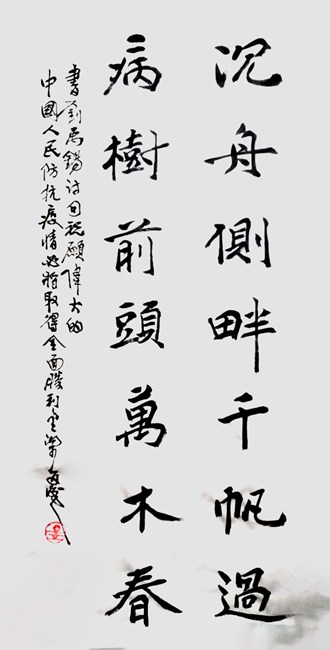 沉舟側畔千帆過
病樹前頭萬木春
書劉禹錫詩句祝願偉大的
中國人民防抗疫情必將取得全面勝利